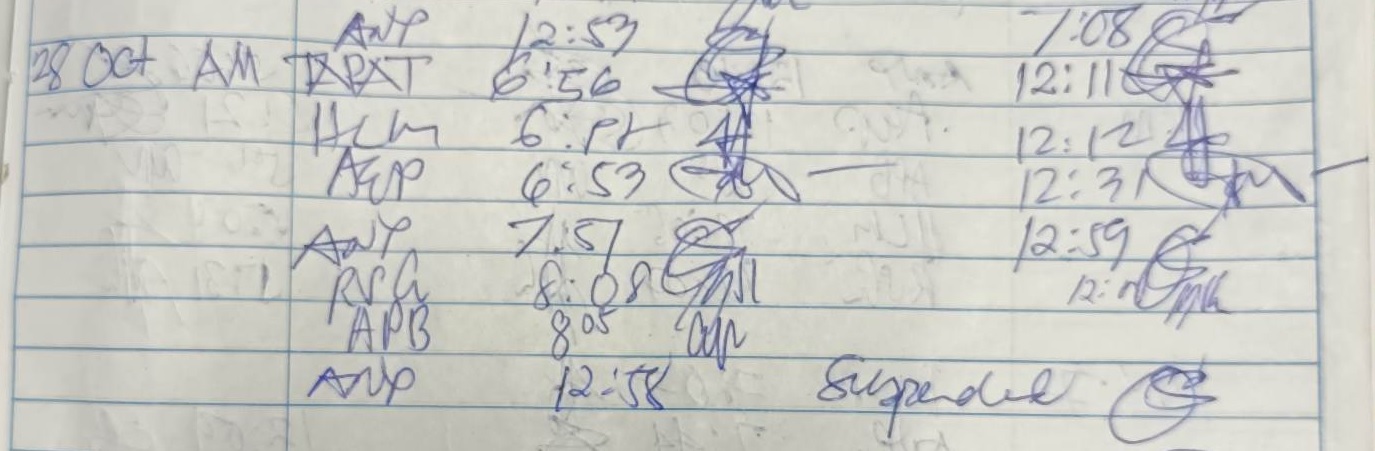 ANP 12:53 7:08
28 Oct AM TAPAT 6:56 12:11
HLM 6: 12:12
AEP 6:53 12:31
ANP 7:57 12:59
RSG 8:08 12:
APB 8:05
ANP 12:58 Suspended